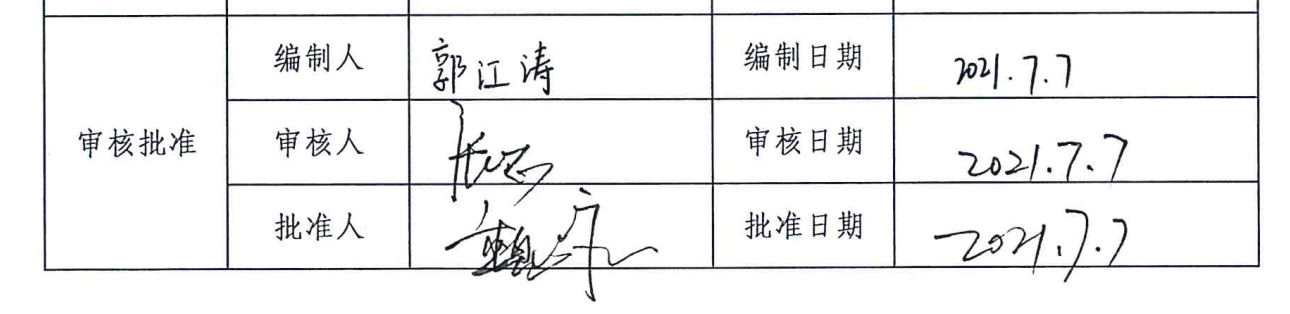 编制人 郭江涛 编制日期 2021.7.7
审核批准 审核人 审核日期 2021.7.7
批准人 批准日期 2021.7.7